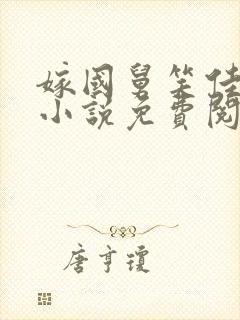 嫁國舅笑佳
小說免費閱
唐亨瓊